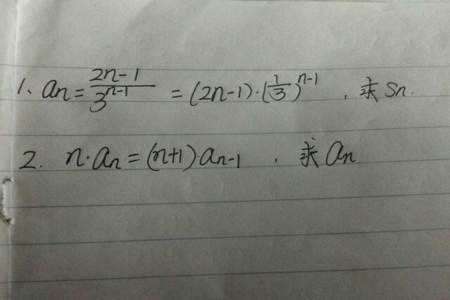 1、an=2n-1/3^{n-1}=(2n-1)·(1/3)^{n-1},求Sn.
2. n·an=(n+1)an-1,求an